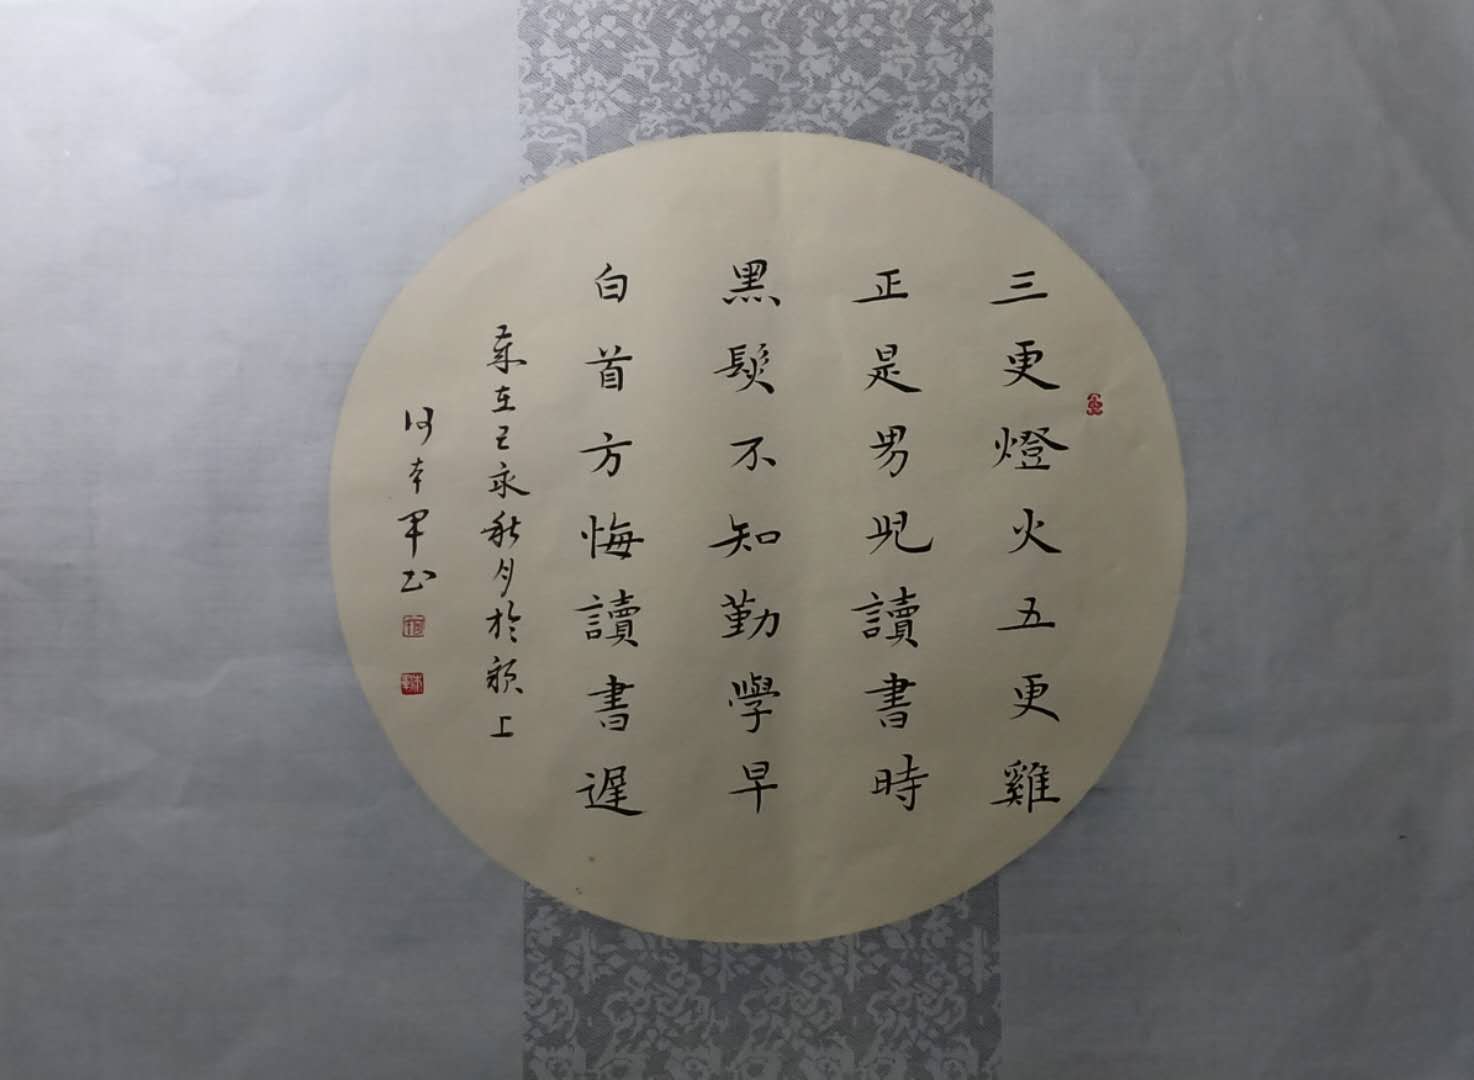 三更燈火五更雞
正是男兒讀書時
黑髮不知勤學早
白首方悔讀書遲
歲在己亥秋月於潁上
何本軍書